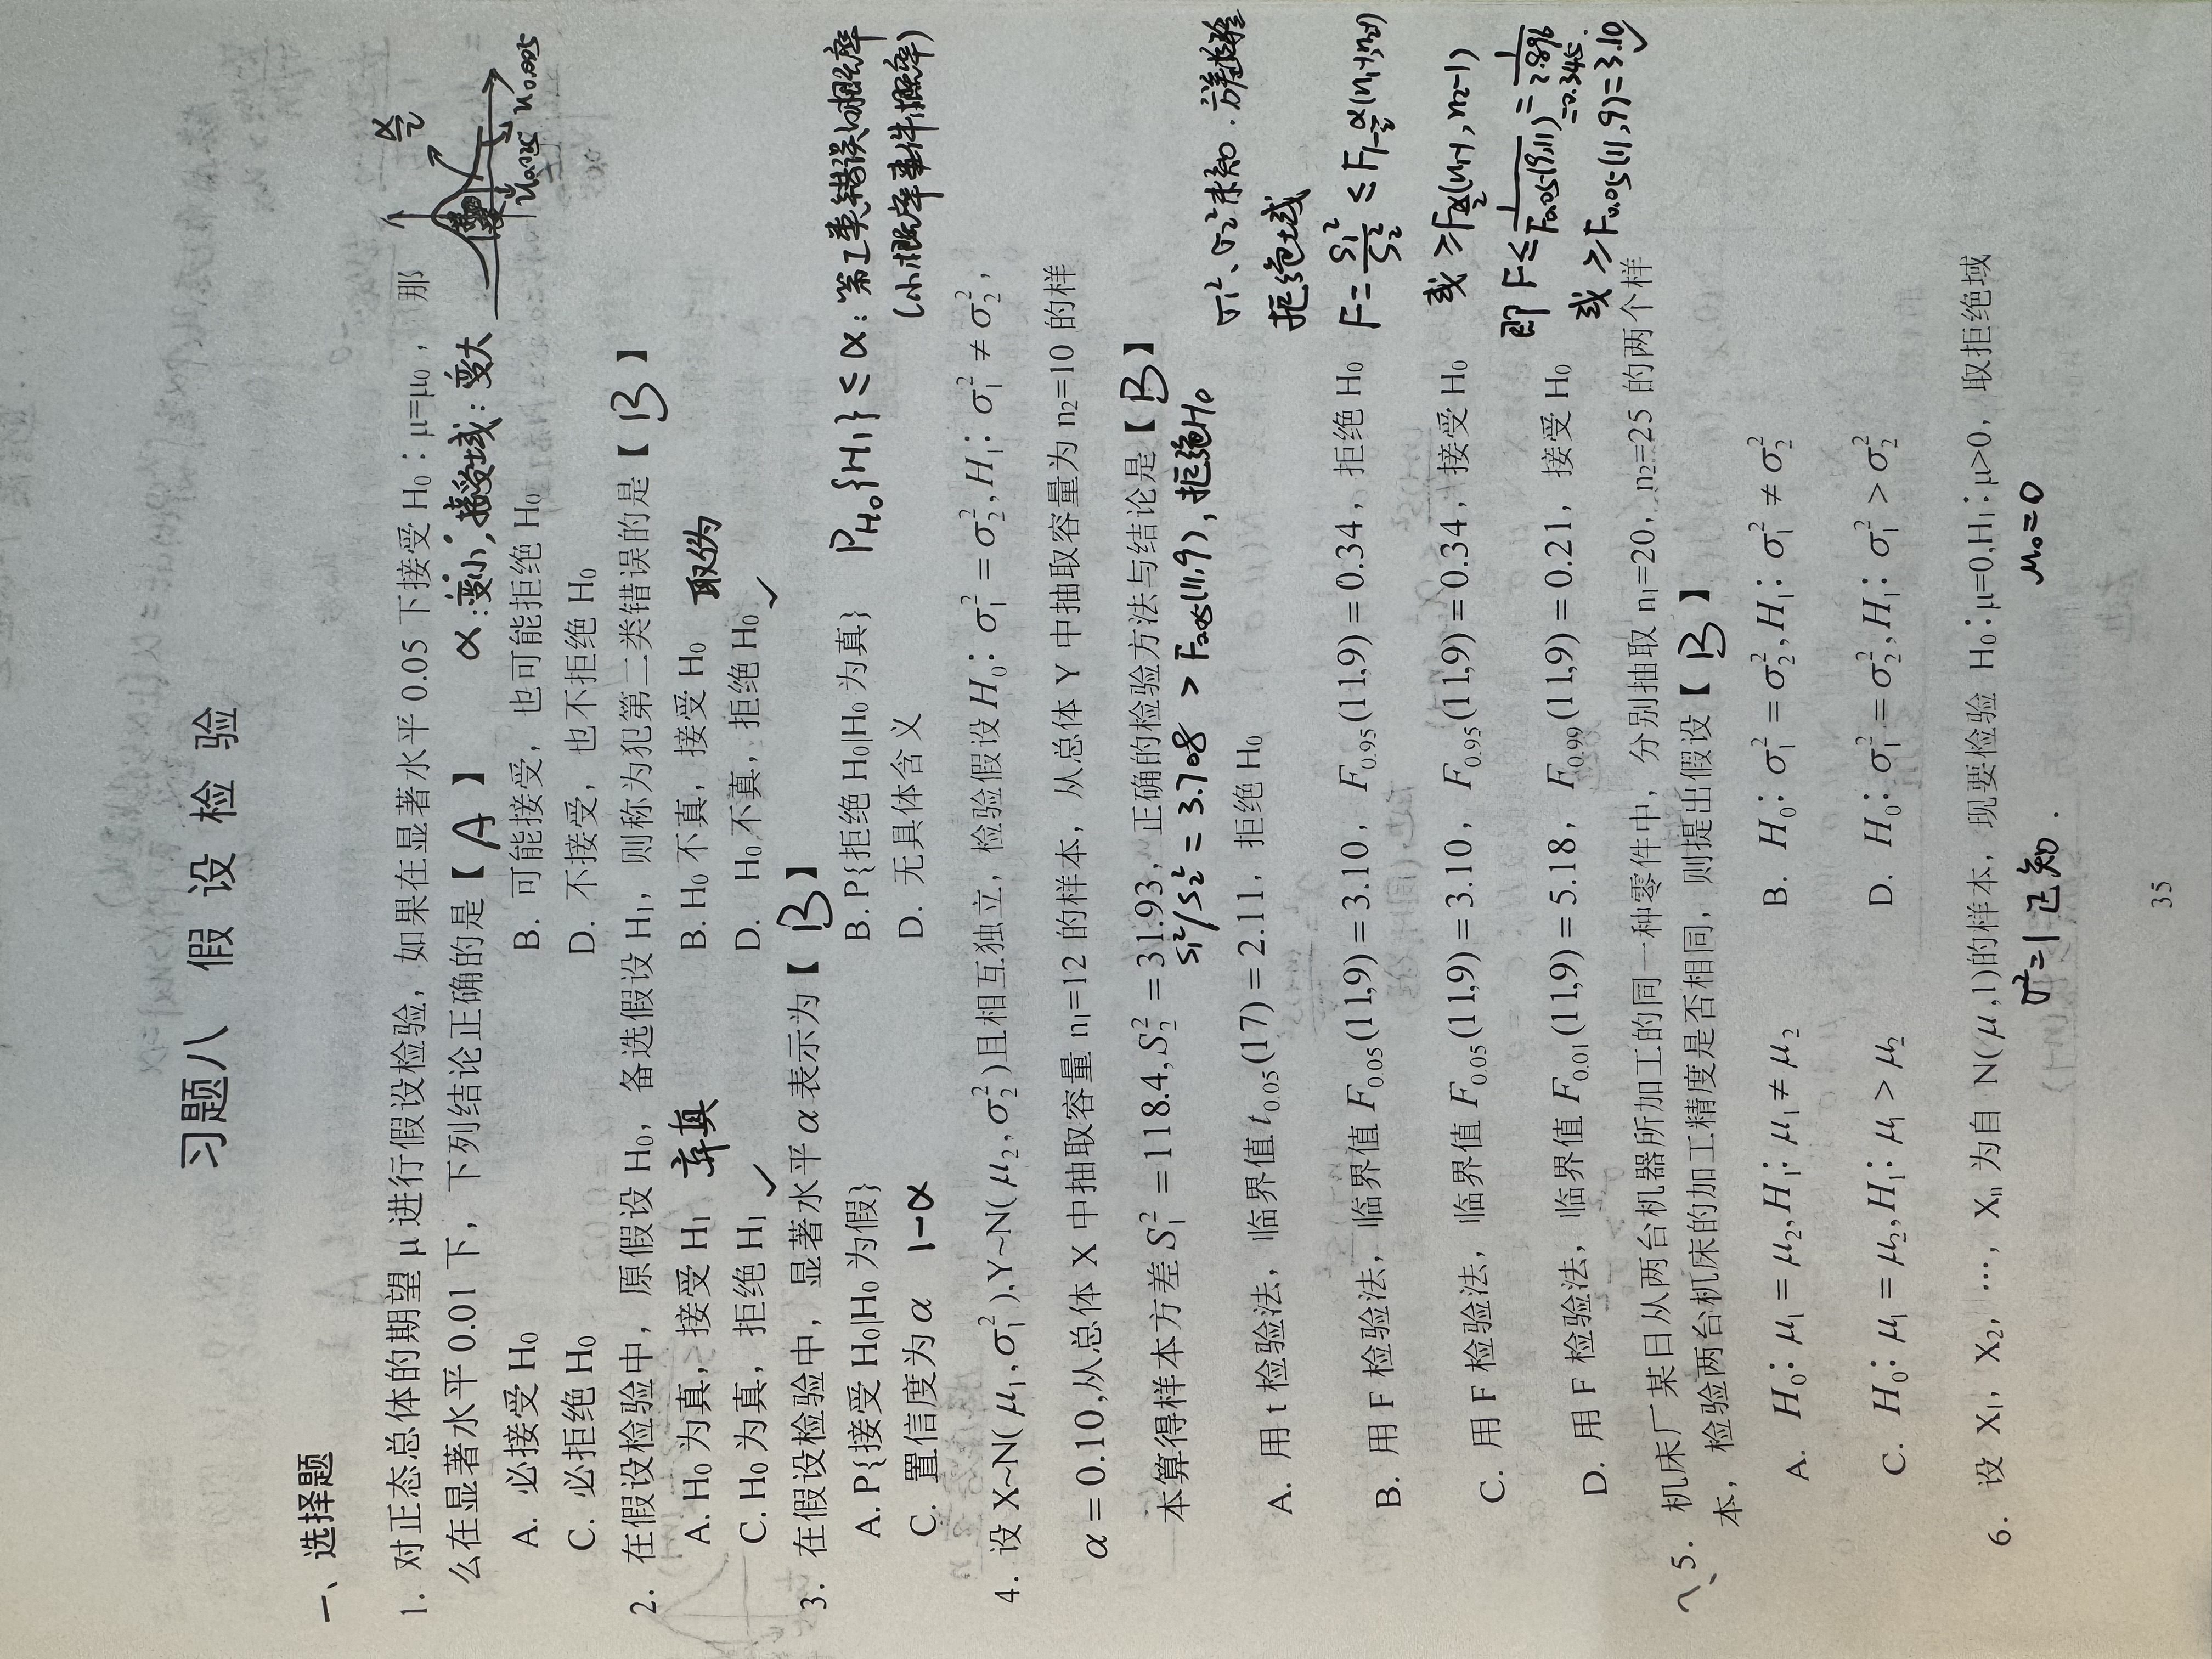 习题八 假设检验
一、选择题
1. 对正态总体的期望 μ 进行假设检验，如果在显著水平 0.05 下接受 H₀：μ=μ₀， 那
α/2
么在显著水平 0.01 下，下列结论正确的是【 A 】 α:变小,接受域:变大
u0.025 u0.005
A. 必接受 H₀ B. 可能接受，也可能拒绝 H₀
C. 必拒绝 H₀ D. 不接受，也不拒绝 H₀
2. 在假设检验中，原假设 H₀，备选假设 H₁，则称为犯第二类错误的是【 B 】
A. H₀ 为真，接受 H₁ 弃真 B. H₀ 不真，接受 H₀ 取伪
C. H₀ 为真，拒绝 H₁ ✓ D. H₀ 不真，拒绝 H₀ ✓
3. 在假设检验中，显著水平 α 表示为【 B 】
A. P{接受 H₀|H₀ 为假} B. P{拒绝 H₀|H₀ 为真} P_H₀{H₁} ≤ α: 第I类错误的概率
C. 置信度为 α 1-α D. 无具体含义 (小概率事件概率)
4. 设 X~N( μ₁,σ₁² ),Y~N( μ₂,σ₂² )且相互独立，检验假设 H₀：σ₁² = σ₂², H₁：σ₁² ≠ σ₂²，
α = 0.10,从总体 X 中抽取容量 n₁=12 的样本，从总体 Y 中抽取容量为 n₂=10 的样
本算得样本方差 S₁² = 118.4, S₂² = 31.93，正确的检验方法与结论是【 B 】
S₁²/S₂² = 3.708 > F0.05(11,9), 拒绝H₀
σ₁²、σ₂²未知.方差检验
A. 用 t 检验法，临界值 t₀.₀₅(17) = 2.11，拒绝 H₀
拒绝域
B. 用 F 检验法，临界值 F₀.₀₅(11,9) = 3.10， F₀.₉₅(11,9) = 0.34，拒绝 H₀
F = S₁²/S₂² ≤ F1-α/2(n₁-1,n₂-1)
C. 用 F 检验法，临界值 F₀.₀₅(11,9) = 3.10， F₀.₉₅(11,9) = 0.34，接受 H₀
或 ≥Fα/2(n₁-1,n₂-1)
即 F≤1/F0.05(9,11) = 1/2.896
=0.345.
D. 用 F 检验法，临界值 F₀.₀₁(11,9) = 5.18， F₀.₉₉(11,9) = 0.21，接受 H₀
或 ≥F0.05(11,9)=3.10 ✓
? 5. 机床厂某日从两台机器所加工的同一种零件中，分别抽取 n₁=20，n₂=25 的两个样
本，检验两台机床的加工精度是否相同，则提出假设【 B 】
A. H₀：μ₁ = μ₂, H₁：μ₁ ≠ μ₂ B. H₀：σ₁² = σ₂², H₁：σ₁² ≠ σ₂²
C. H₀：μ₁ = μ₂, H₁：μ₁ > μ₂ D. H₀：σ₁² = σ₂², H₁：σ₁² > σ₂²
6. 设 X₁，X₂，…，Xₙ 为自 N(μ,1)的样本，现要检验 H₀：μ=0,H₁：μ>0，取拒绝域
σ²=1 已知. μ₀=0
35